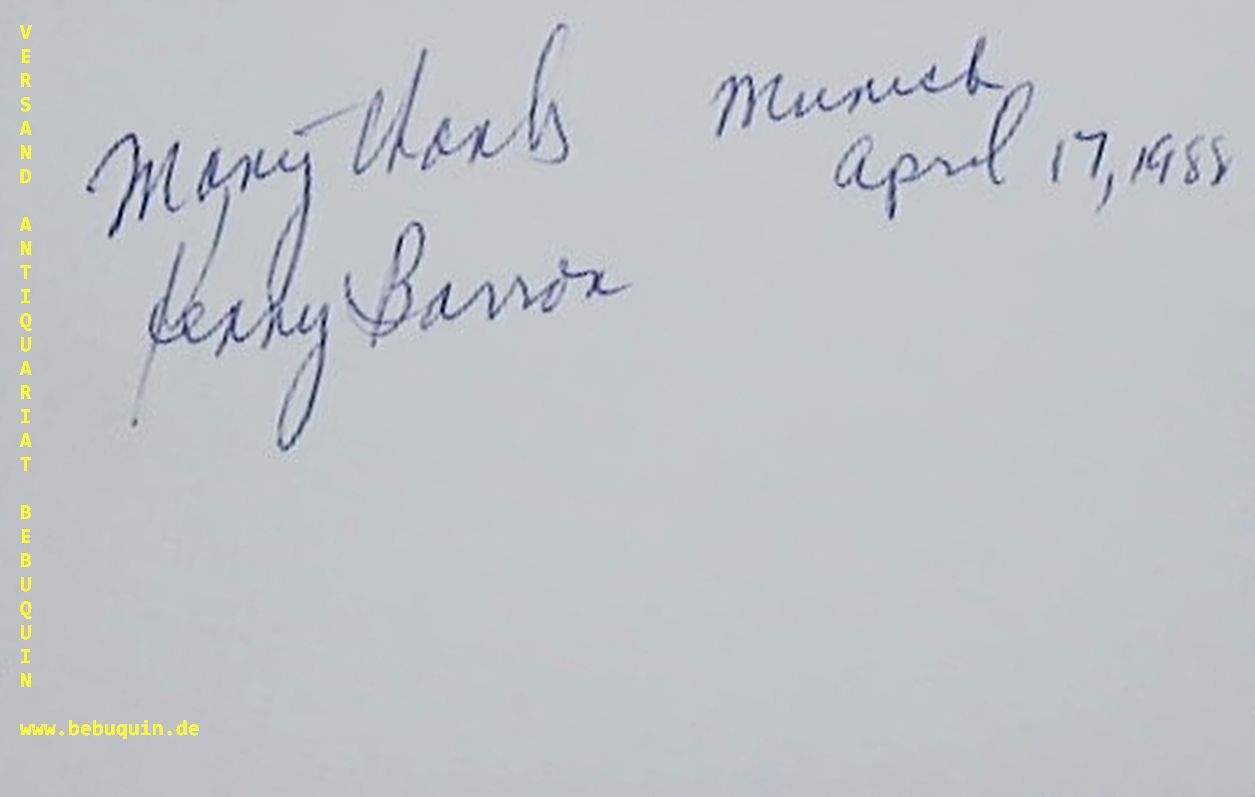 Many thanks
Kenny Barron
Munich
April 17, 1988
VERSAND ANTIQUARIAT BEBUQUIN
www.bebuquin.de